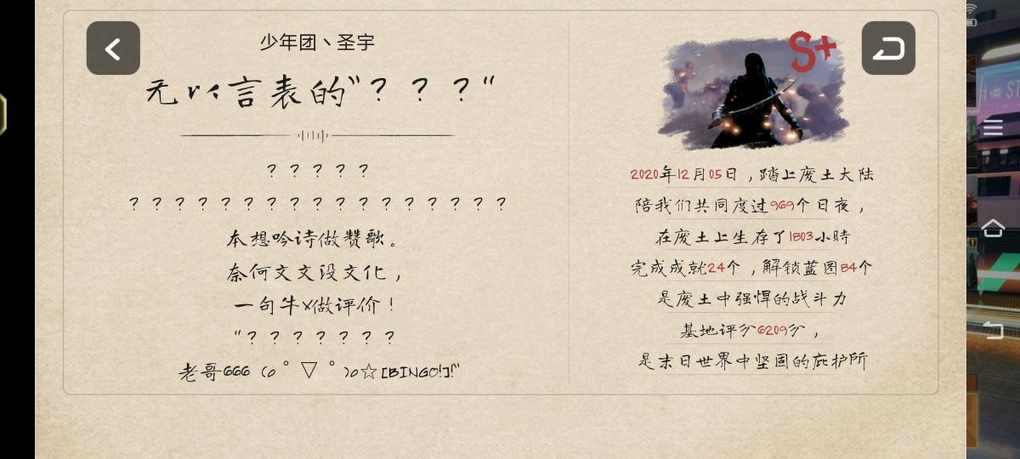 少年团丶圣宇
无ri言表的"？？？"
？？？？？
？？？？？？？？？？？？？？？？？
本想吟诗做赞歌。
奈何文文没文化，
一句牛x做评价！
"？？？？？？？
老哥666 (o゜▽゜)o☆[BINGO!]"
S+
2020年12月05日，踏上废土大陆
陪我们共同度过969个日夜，
在废土上生存了1803小時
完成成就24个，解锁蓝图84个
是废土中强悍的战斗力
基地评分6209分，
是末日世界中坚固的庇护所